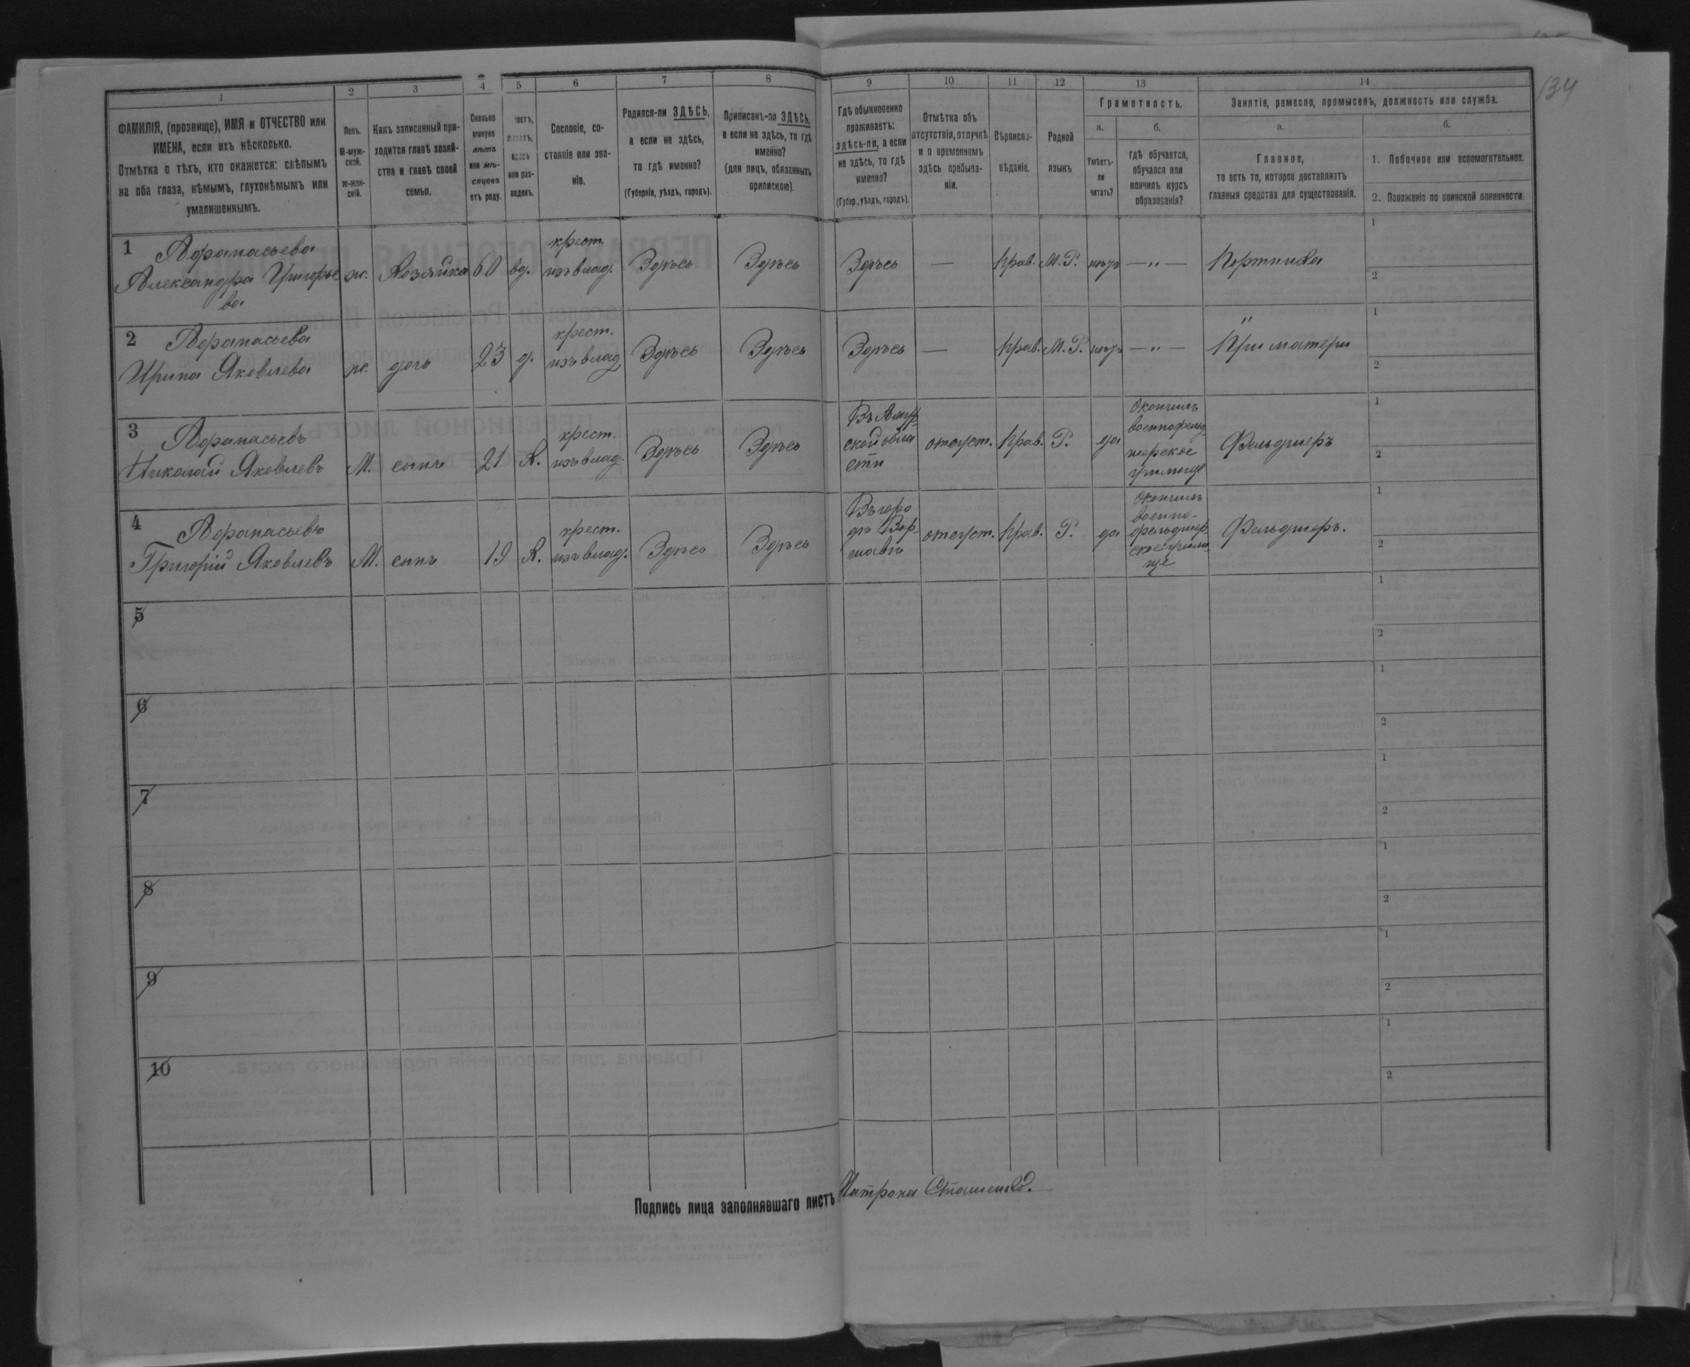 134
1 2 3 4 5 6 7 8 9 10 11 12 13 14
ФАМИЛІЯ, (прозвище), ИМЯ и ОТЧЕСТВО или
ИМЕНА, если ихъ нѣсколько.
Отмѣтка о тѣхъ, кто окажется: слѣпымъ
на оба глаза, нѣмымъ, глухонѣмымъ или
умалишеннымъ.
Полъ.
М-муж-
ской.
Ж-жен-
скій.
Какъ записанный при-
ходится главѣ хозяй-
ства и главѣ своей
семьи.
Сколько
минуло
лѣтъ
или мѣ-
сяцевъ
отъ роду.
или раз-
веденъ.
Сословіе, со-
стояніе или зва-
ніе.
Родился-ли ЗДѢСЬ,
а если не здѣсь,
то гдѣ именно?
(Губернія, уѣздъ, городъ).
Приписанъ-ли ЗДѢСЬ,
а если не здѣсь, то гдѣ
именно?
(для лицъ, обязанныхъ
припиской).
Гдѣ обыкновенно
проживаетъ:
здѣсь-ли, а если
не здѣсь, то гдѣ
именно?
(Губер., уѣздъ, городъ).
Отмѣтка объ
отсутствіи, отлучкѣ
и о временномъ
здѣсь пребыва-
ніи.
Вѣроиспо-
вѣданіе.
Родной
языкъ
Грамотность.
а.
Умѣетъ-
ли
читать?
б.
гдѣ обучается,
обучался или
кончилъ курсъ
образованія?
Занятіе, ремесло, промыселъ, должность или служба.
а.
Главное,
то есть то, которое доставляетъ
главныя средства для существованія.
б.
1. Побочное или вспомогательное.
2. Положеніе по воинской повинности.
1 Афанасьева
Александра Григорье
ва
ж. Хозяйка 60 вд.
крест.
изъ влад.
Здѣсь Здѣсь Здѣсь — Прав. М. Р. нѣтъ —„— Портниха
1
2
2 Афанасьева
Ирина Яковлева
ж. дочь 23 д.
крест.
изъ влад.
Здѣсь Здѣсь Здѣсь — Прав. М. Р. нѣтъ —„—
"
При матери
1
2
3 Афанасьевъ
Николай Яковлевъ
М. сынъ 21 Х.
крест.
изъ влад.
Здѣсь Здѣсь
Въ Амур
ской обла
сти
отсут. Прав. Р. да
Окончилъ
военнофельд
шерское
училище
Фельдшеръ
1
2
4 Афанасьевъ
Григорій Яковлевъ
М. сынъ 19 Х.
крест.
изъ влад.
Здѣсь Здѣсь
Въ горо
дѣ Вар
шавѣ
отсут. Прав. Р. да
Окончилъ
военно-
фельдшер
ское учили
ще
Фельдшеръ.
1
2
5
1
2
6
1
2
7
1
2
8
1
2
9
1
2
10
1
2
Подпись лица заполнявшаго листъ